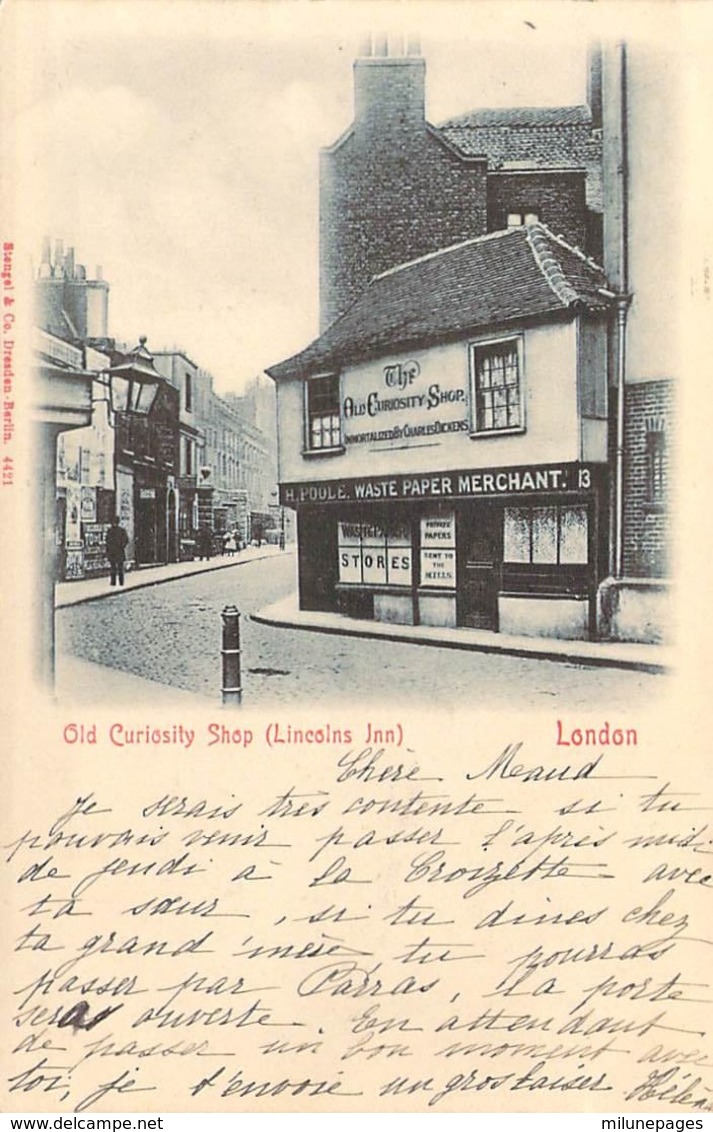 The
Old Curiosity Shop.
Immortalized by Charles Dickens
H. POOLE. WASTE PAPER MERCHANT. 13
WASTE PAPER
STORES
PRIVATE
PAPERS
SENT TO
THE
MILLS
Stengel & Co. Dresden-Berlin. 4421
Old Curiosity Shop (Lincolns Inn) London
Chère Maud
Je serais très contente si tu
pouvais venir passer l'après midi
de jeudi à la Croizette avec
ta sœur, si tu dines chez
ta grand'mère, tu pourras
passer par Parras, la porte
seras ouverte. En attendant
de passer un bon moment avec
toi, je t'envoie un gros baiser Hélèna
milunepages